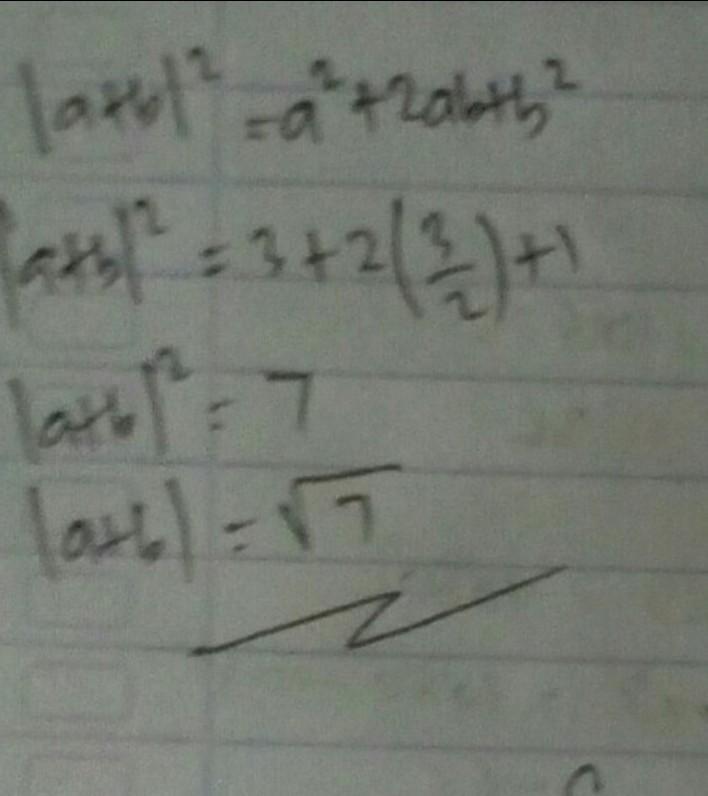 |a+b|² = a² + 2ab + b²
|a+b|² = 3 + 2(3/2) + 1
|a+b|² = 7
|a+b| = √7